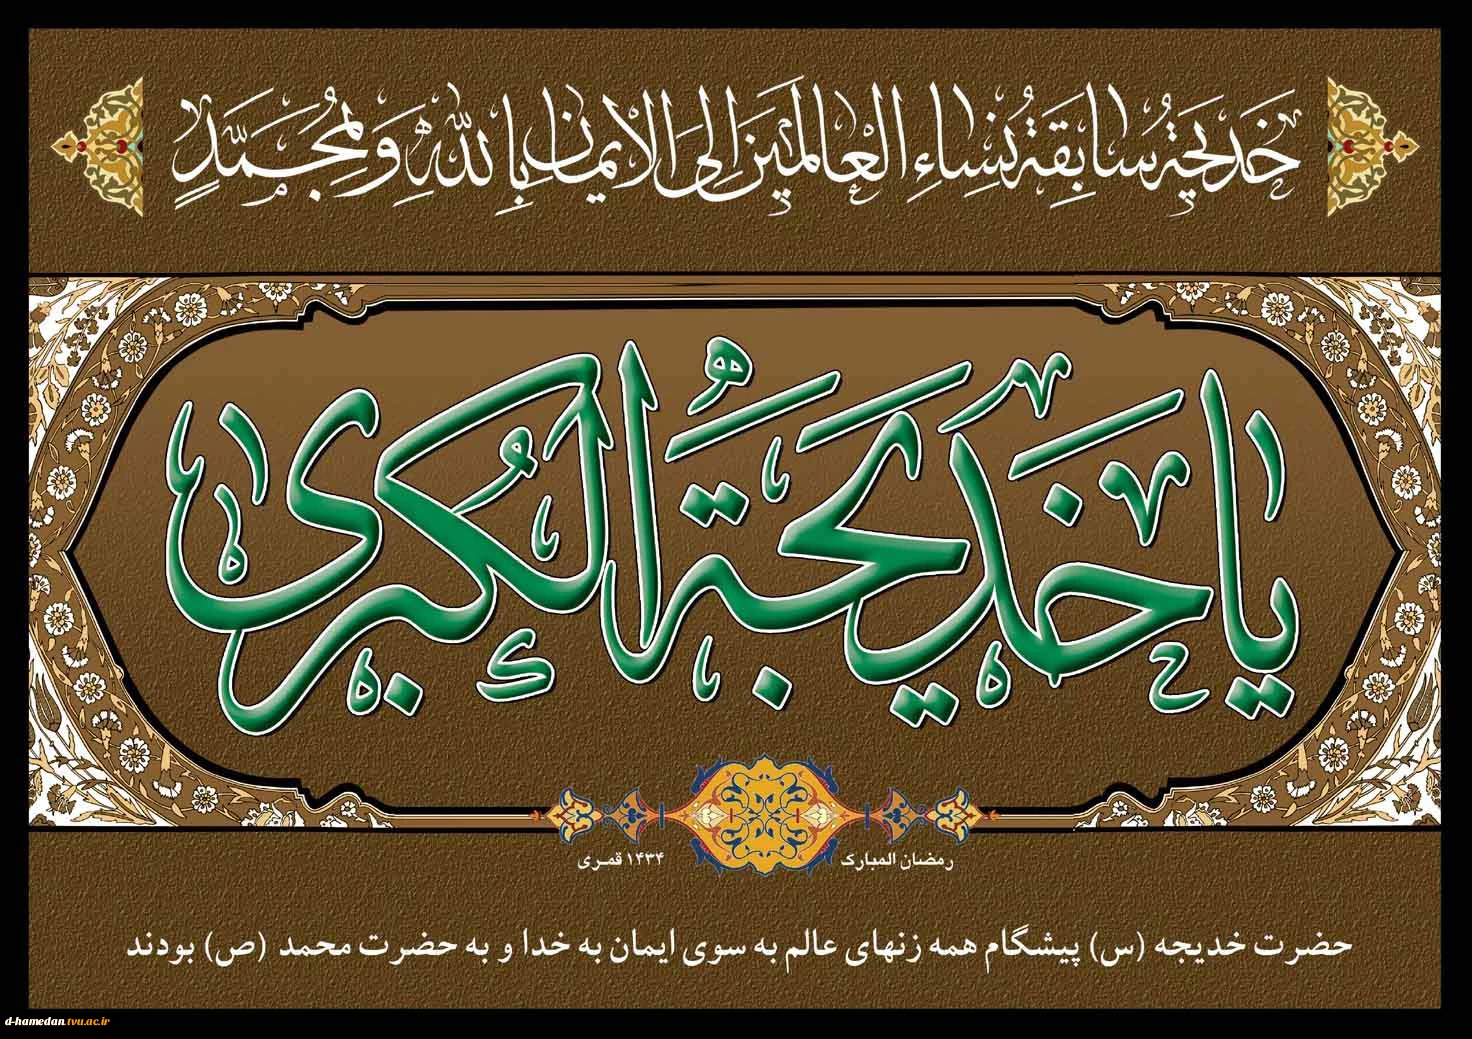 خَديجَةُ سابِقَةُ نِساءِ العالَمينَ إلَی الایمانِ بِاللّهِ وَ بِمُحَمَّدٍ
یا خدیجةُ الکُبری
رمضان المبارک ۱۴۳۴ قمـری
حضرت خدیجه (س) پیشگام همه زنهای عالم به سوی ایمان به خدا و به حضرت محمد (ص) بودند
d-hamedan.tvu.ac.ir